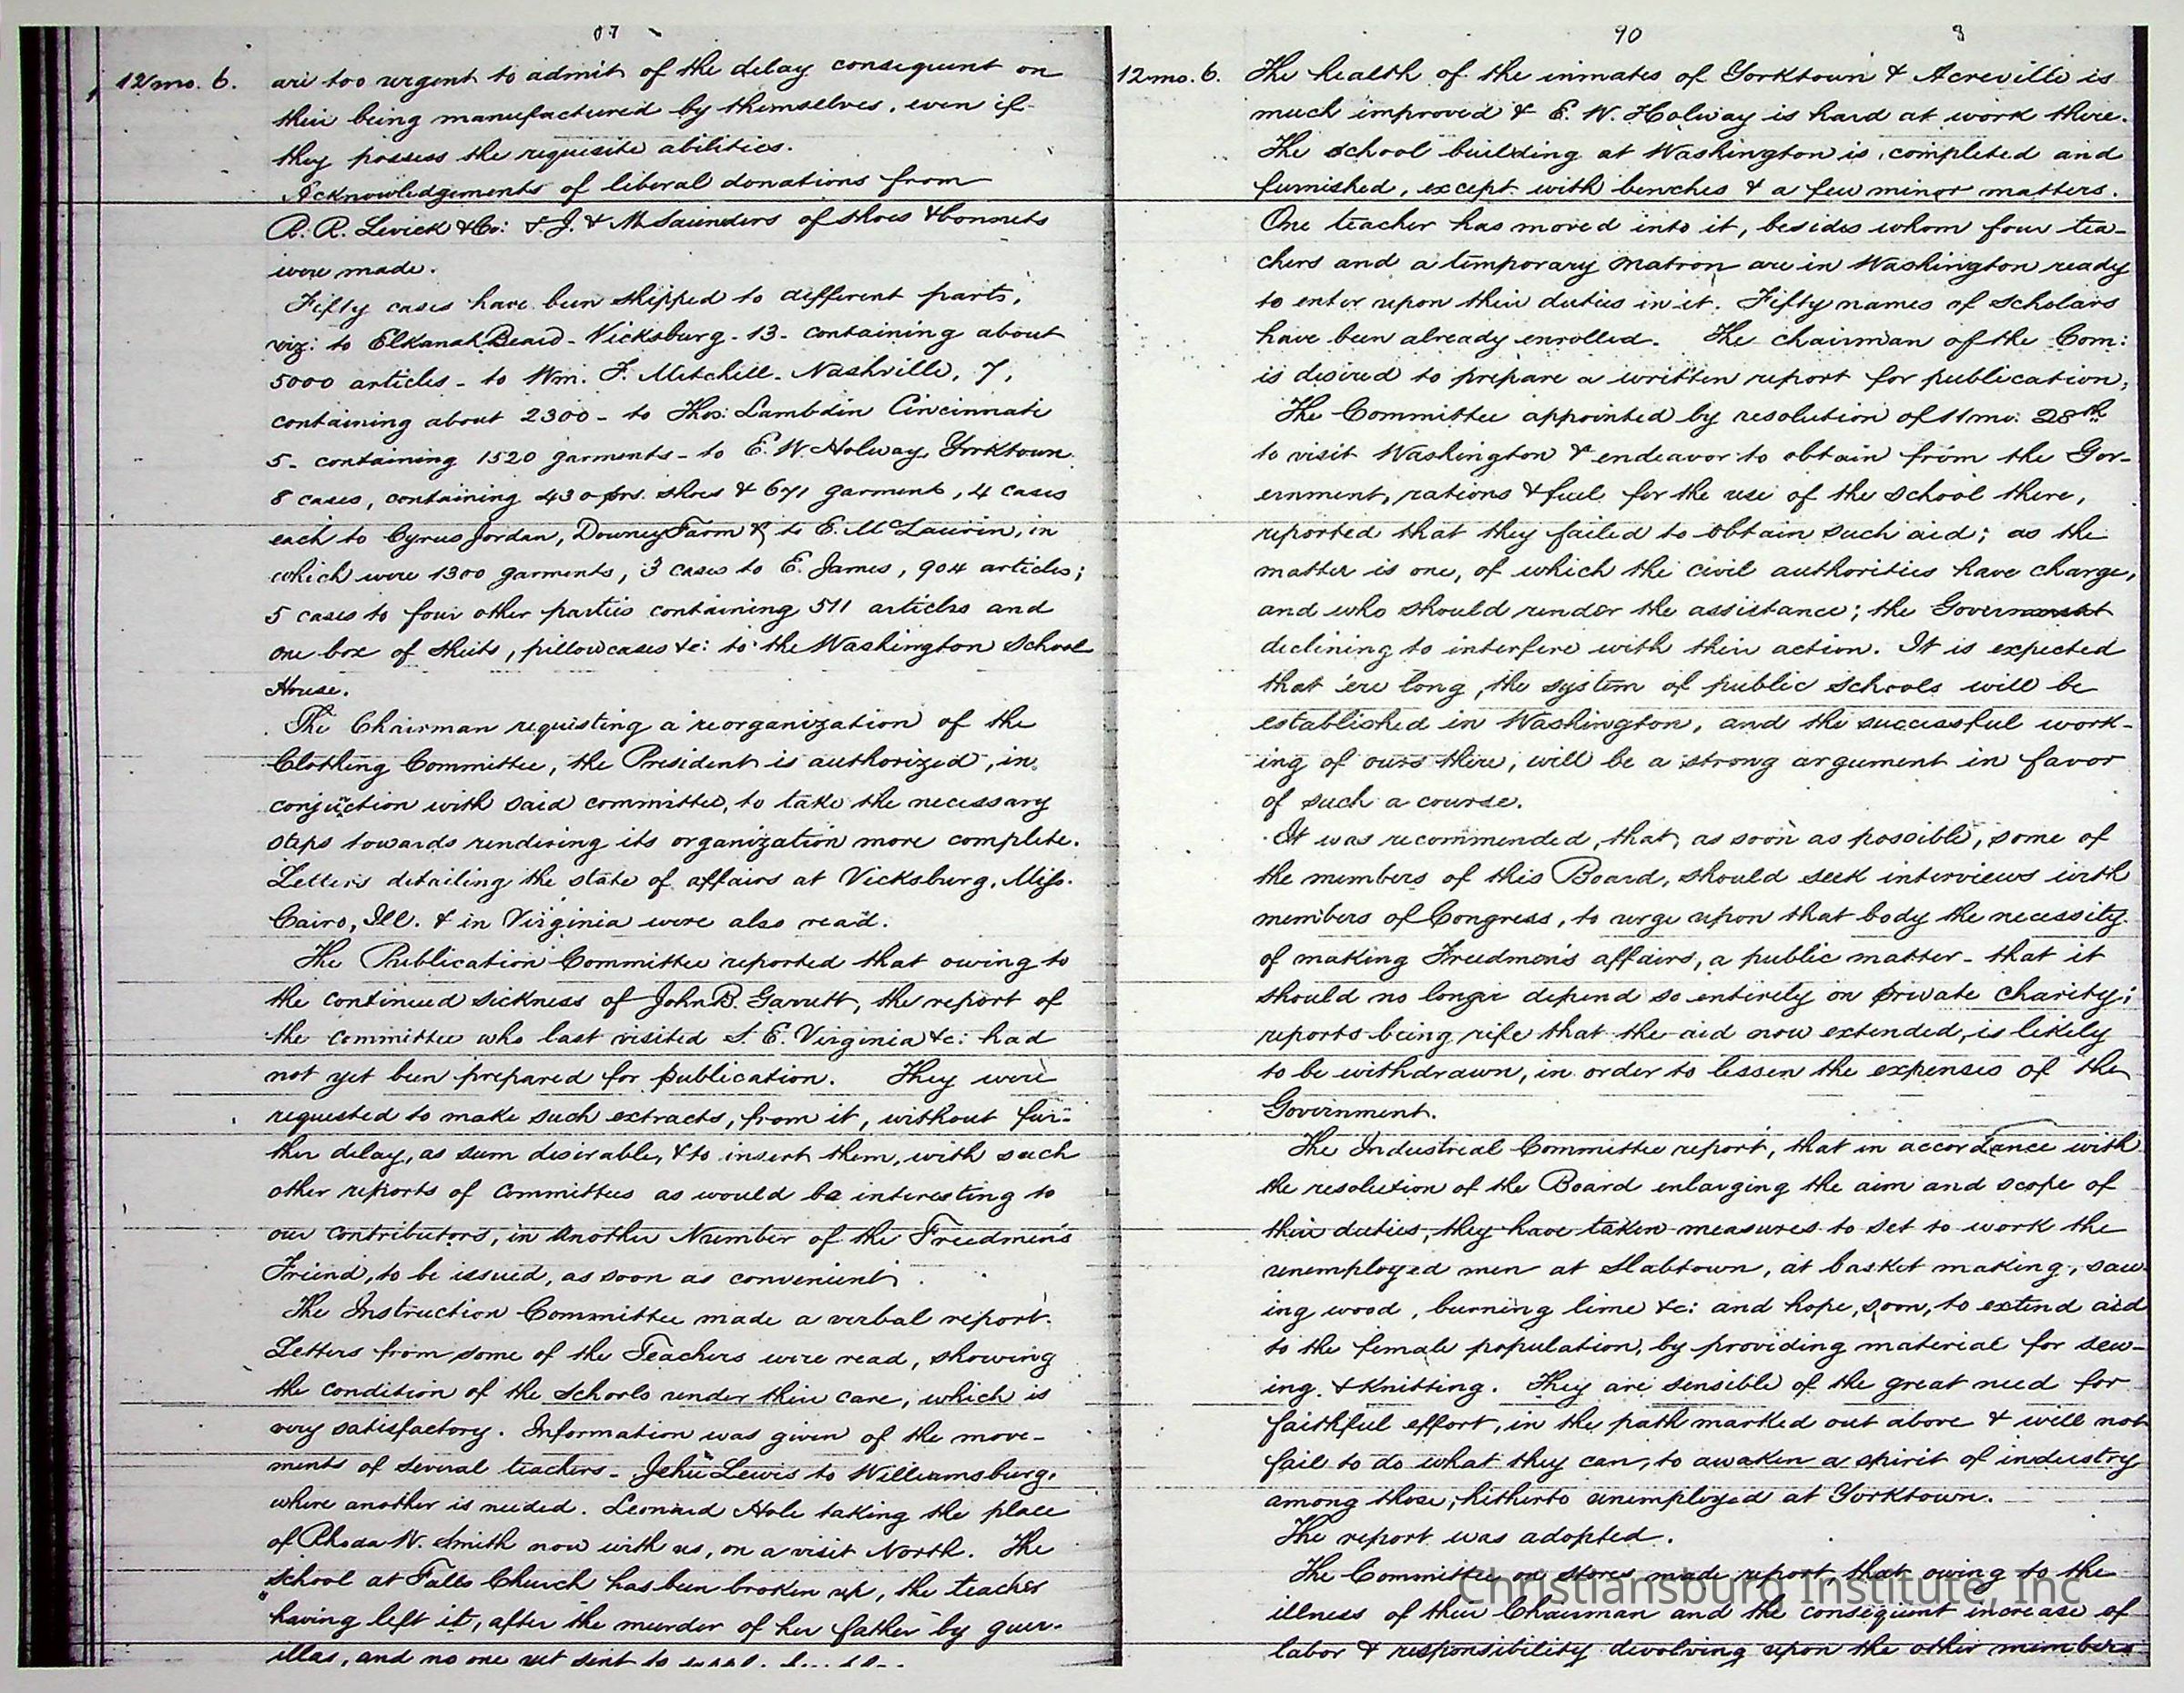 12 mo. 6.
are too urgent to admit of the delay consequent on
their being manufactured by themselves, even if
they possess the requisite abilities.
Acknowledgements of liberal donations from
R. R. Levick & Co: & J. & M Saunders of shoes & bonnets
were made.
Fifty cases have been shipped to different parts,
viz: to Elkanah Beard - Vicksburg - 13 - containing about
5000 articles - to Wm. F. Mitchell - Nashville, 7,
containing about 2300 - to Thos: Lambdin Cincinnati
5 - containing 1520 garments - to E. W. Holway, Yorktown
8 cases, containing 430 prs. shoes & 671 garments, 4 cases
each to Cyrus Jordan, Downey Farm & to E. McLaurin, in
which were 1300 garments, 3 cases to E. James, 904 articles;
5 cases to four other parties containing 511 articles and
one box of sheets, pillowcases &c: to the Washington School
House.
The Chairman requesting a reorganization of the
Clothing Committee, the President is authorized, in
conjuction with said committee, to take the necessary
steps towards rendering its organization more complete.
Letters detailing the state of affairs at Vicksburg, Miss.
Cairo, Ill. & in Virginia were also read.
The Publication Committee reported that owing to
the continued sickness of John B. Garrett, the report of
the committee who last visited S. E. Virginia &c: had
not yet been prepared for publication. They were
requested to make such extracts, from it, without fur-
ther delay, as seem desirable, & to insert them, with such
other reports of Committees as would be interesting to
our contributors, in another Number of the Freedmen's
Friend, to be issued, as soon as convenient.
The Instruction Committee made a verbal report.
Letters from some of the Teachers were read, showing
the condition of the schools under their care, which is
very satisfactory. Information was given of the move-
ments of several teachers - Jehu Lewis to Williamsburg,
where another is needed. Leonard Hole taking the place
of Rhoda W. Smith now with us, on a visit North. The
school at Falls Church has been broken up, the teacher
having left it, after the murder of her father by guer-
illas, and no one yet sent to
90
12 mo. 6.
The health of the inmates of Yorktown & Acreville is
much improved & E. W. Holway is hard at work there.
The school building at Washington is completed and
furnished, except with benches & a few minor matters.
One teacher has moved into it, besides whom four tea-
chers and a temporary matron are in Washington ready
to enter upon their duties in it. Fifty names of scholars
have been already enrolled. The chairman of the Com:
is desired to prepare a written report for publication,
The Committee appointed by resolution of 11 mo: 28th
to visit Washington & endeavor to obtain from the Gov-
ernment, rations & fuel for the use of the school there,
reported that they failed to obtain such aid; as the
matter is one, of which the civil authorities have charge,
and who should render the assistance; the Government
declining to interfere with their action. It is expected
that 'ere long, the system of public schools will be
established in Washington, and the successful work-
ing of ours there, will be a strong argument in favor
of such a course.
It was recommended, that, as soon as possible, some of
the members of this Board, should seek interviews with
members of Congress, to urge upon that body the necessity
of making Freedmen's affairs, a public matter - that it
should no longer depend so entirely on private charity;
reports being rife that the aid now extended, is likely
to be withdrawn, in order to lessen the expenses of the
Government.
The Industrial Committee report, that in accordance with
the resolution of the Board enlarging the aim and scope of
their duties, they have taken measures to set to work the
unemployed men at Slabtown, at basket making, saw-
ing wood, burning lime &c: and hope, soon, to extend aid
to the female population, by providing material for sew-
ing & knitting. They are sensible of the great need for
faithful effort, in the path marked out above & will not
fail to do what they can, to awaken a spirit of industry
among those, hitherto unemployed at Yorktown.
The report was adopted.
The Committee on stores made report, that owing to the
illness of their Chairman and the consequent increase of
labor & responsibility devolving upon the other members
Christiansburg Institute, Inc